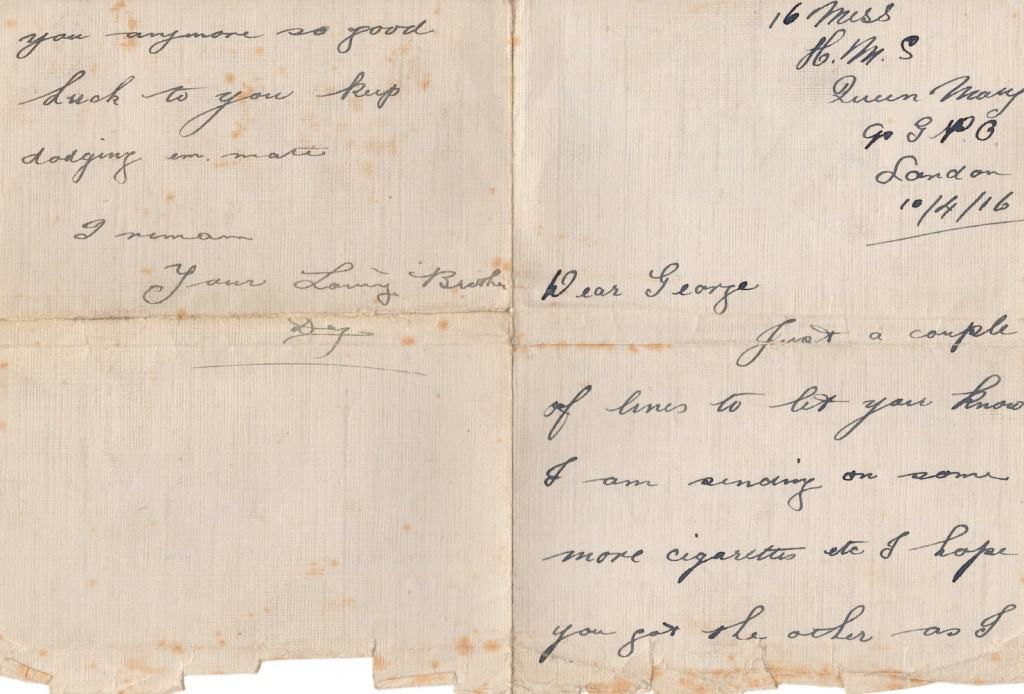 16 Mess
H.M.S
Queen Mary
c/o G.P.O
London
10/4/16
Dear George
Just a couple
of lines to let you know
I am sending on some
more cigarettes etc I hope
you got the other as I
you anymore so good
luck to you keep
dodging em. mate
I remain
Your Loving Brother